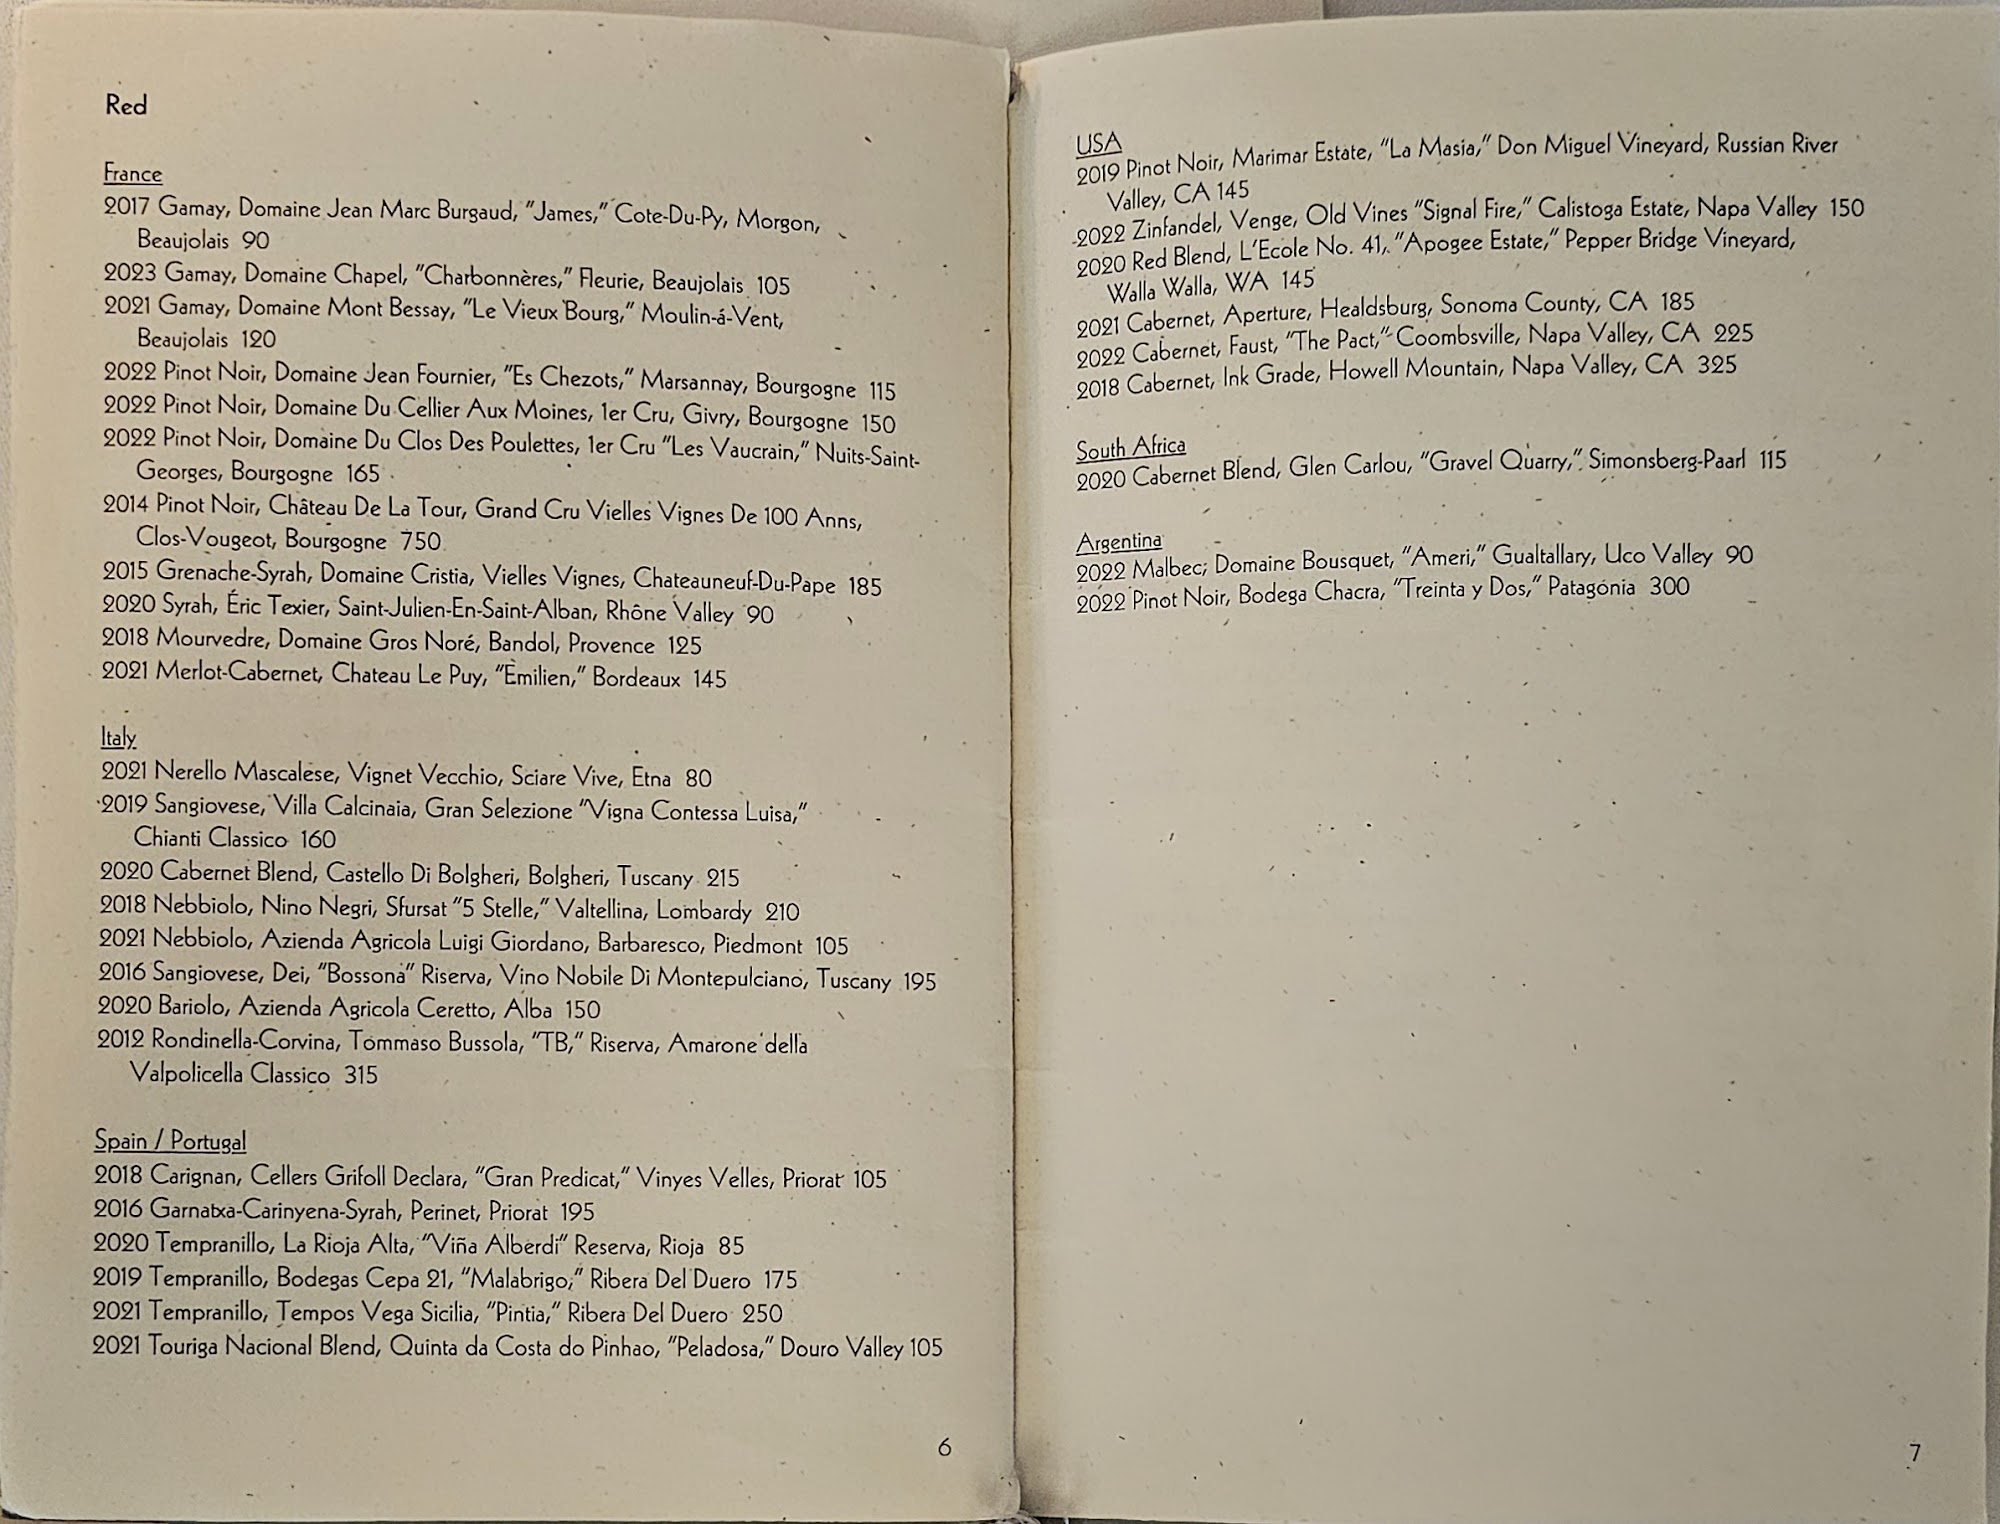 Red
France
2017 Gamay, Domaine Jean Marc Burgaud, "James," Cote-Du-Py, Morgon,
Beaujolais 90
2023 Gamay, Domaine Chapel, "Charbonnères," Fleurie, Beaujolais 105
2021 Gamay, Domaine Mont Bessay, "Le Vieux Bourg," Moulin-á-Vent,
Beaujolais 120
2022 Pinot Noir, Domaine Jean Fournier, "Es Chezots," Marsannay, Bourgogne 115
2022 Pinot Noir, Domaine Du Cellier Aux Moines, 1er Cru, Givry, Bourgogne 150
2022 Pinot Noir, Domaine Du Clos Des Poulettes, 1er Cru "Les Vaucrain," Nuits-Saint-
Georges, Bourgogne 165
2014 Pinot Noir, Château De La Tour, Grand Cru Vielles Vignes De 100 Anns,
Clos-Vougeot, Bourgogne 750
2015 Grenache-Syrah, Domaine Cristia, Vielles Vignes, Chateauneuf-Du-Pape 185
2020 Syrah, Éric Texier, Saint-Julien-En-Saint-Alban, Rhône Valley 90
2018 Mourvedre, Domaine Gros Noré, Bandol, Provence 125
2021 Merlot-Cabernet, Chateau Le Puy, "Emilien," Bordeaux 145
Italy
2021 Nerello Mascalese, Vignet Vecchio, Sciare Vive, Etna 80
2019 Sangiovese, Villa Calcinaia, Gran Selezione "Vigna Contessa Luisa,"
Chianti Classico 160
2020 Cabernet Blend, Castello Di Bolgheri, Bolgheri, Tuscany 215
2018 Nebbiolo, Nino Negri, Sfursat "5 Stelle," Valtellina, Lombardy 210
2021 Nebbiolo, Azienda Agricola Luigi Giordano, Barbaresco, Piedmont 105
2016 Sangiovese, Dei, "Bossona" Riserva, Vino Nobile Di Montepulciano, Tuscany 195
2020 Bariolo, Azienda Agricola Ceretto, Alba 150
2012 Rondinella-Corvina, Tommaso Bussola, "TB," Riserva, Amarone della
Valpolicella Classico 315
Spain / Portugal
2018 Carignan, Cellers Grifoll Declara, "Gran Predicat," Vinyes Velles, Priorat 105
2016 Garnatxa-Carinyena-Syrah, Perinet, Priorat 195
2020 Tempranillo, La Rioja Alta, "Viña Alberdi" Reserva, Rioja 85
2019 Tempranillo, Bodegas Cepa 21, "Malabrigo," Ribera Del Duero 175
2021 Tempranillo, Tempos Vega Sicilia, "Pintia," Ribera Del Duero 250
2021 Touriga Nacional Blend, Quinta da Costa do Pinhao, "Peladosa," Douro Valley 105
6
USA
2019 Pinot Noir, Marimar Estate, "La Masia," Don Miguel Vineyard, Russian River
Valley, CA 145
2022 Zinfandel, Venge, Old Vines "Signal Fire," Calistoga Estate, Napa Valley 150
2020 Red Blend, L'Ecole No. 41, "Apogee Estate," Pepper Bridge Vineyard,
Walla Walla, WA 145
2021 Cabernet, Aperture, Healdsburg, Sonoma County, CA 185
2022 Cabernet, Faust, "The Pact," Coombsville, Napa Valley, CA 225
2018 Cabernet, Ink Grade, Howell Mountain, Napa Valley, CA 325
South Africa
2020 Cabernet Blend, Glen Carlou, "Gravel Quarry," Simonsberg-Paarl 115
Argentina
2022 Malbec, Domaine Bousquet, "Ameri," Gualtallary, Uco Valley 90
2022 Pinot Noir, Bodega Chacra, "Treinta y Dos," Patagonia 300
7